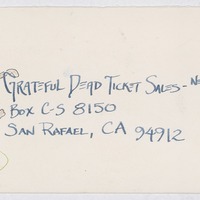 GRATEFUL DEAD TICKET SALES -
BOX C-S 8150
SAN RAFAEL, CA 94912